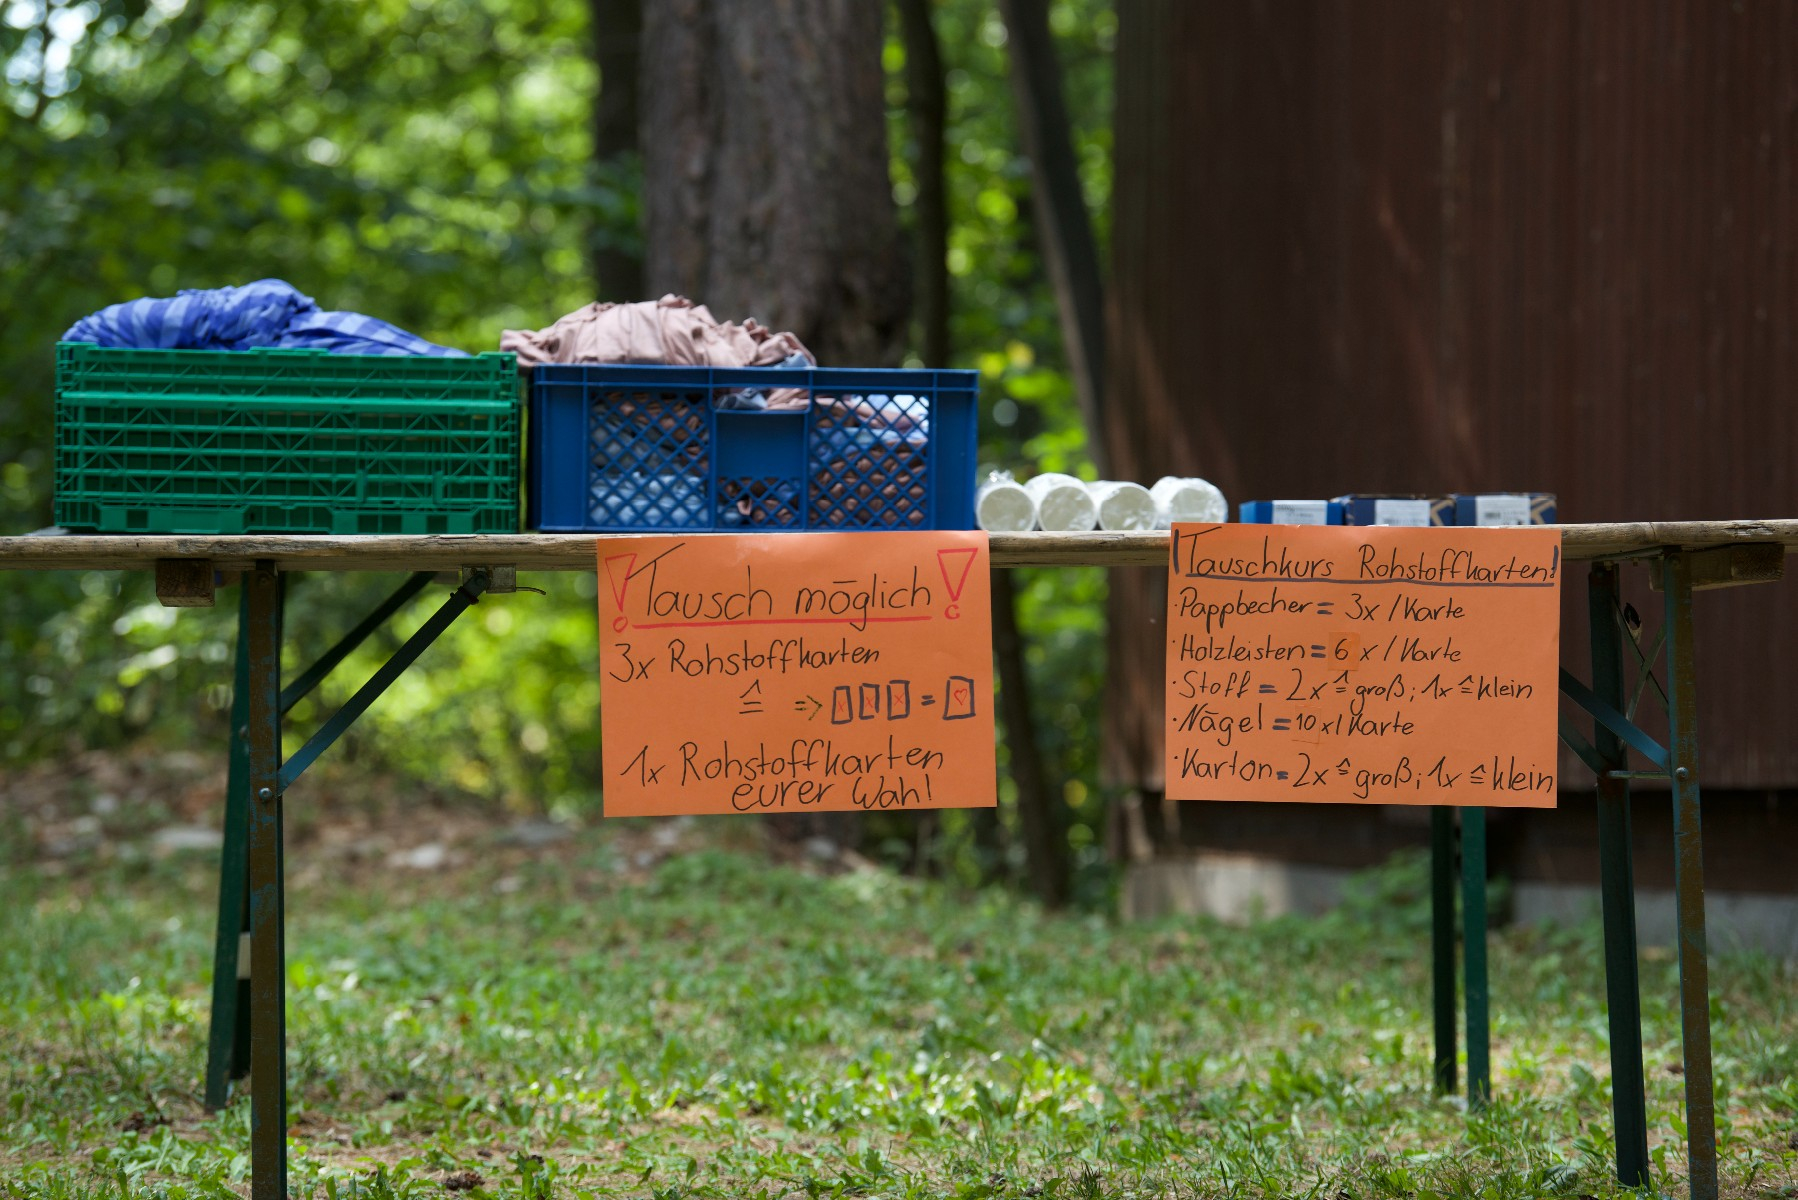 ! Tausch möglich !
3x Rohstoffkarten
≙ => x x x = ♡
1x Rohstoffkarten
eurer Wahl
! Tauschkurs Rohstoffkarten!
· Pappbecher = 3x / Karte
· Holzleisten = 6 x / Karte
· Stoff = 2x ≙ groß; 1x ≙ klein
· Nägel = 10 x / Karte
· Karton = 2x ≙ groß; 1x ≙ klein